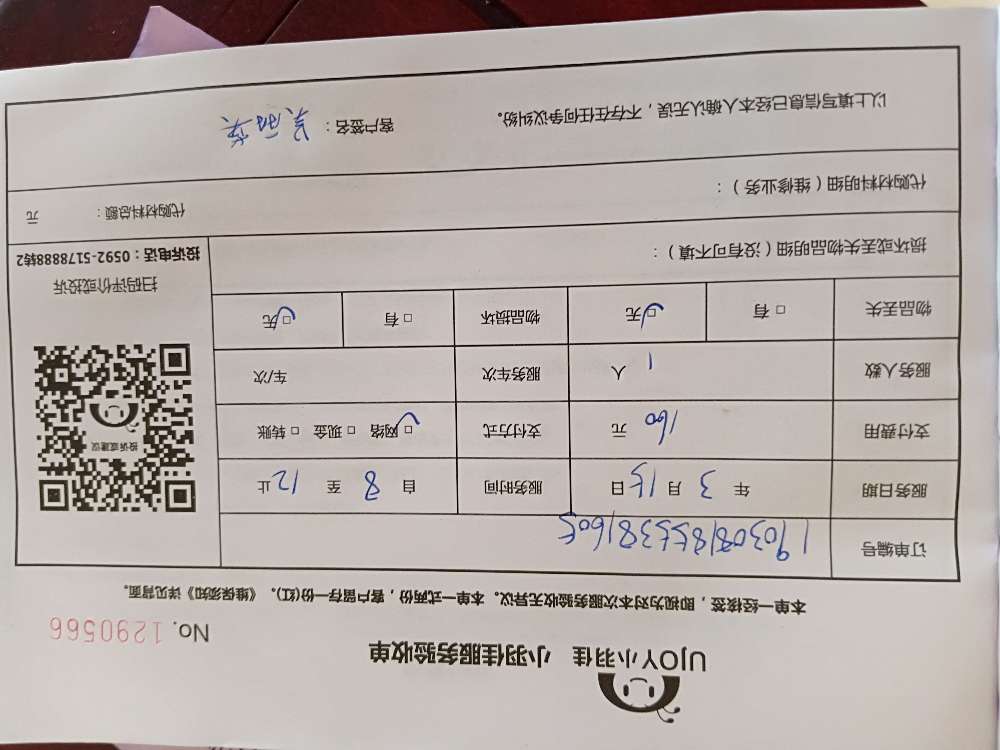 UJOY小羽佳 小羽佳服务验收单
No. 1290566
本单一经核签，即视为对本次服务验收无异议。本单一式两份，客户留存一份(红)。《维保须知》详见背面。
订单编号 1903081855381605
服务日期 年 3 月 15 日 服务时间 自 8 至 12 止
支付费用 160 元 支付方式 □网络 □现金 □转账
服务人数 1 人 服务车次 车/次
物品丢失 □有 □无 物品损坏 □有 □无
投诉或建议
扫码评价或投诉
投诉电话：0592-5178888转2
损坏或丢失物品明细（没有可不填）：
代购材料明细（维修业务）： 代购材料总额： 元
以上填写信息已经本人确认无误，不存在任何争议纠纷。 客户签名：